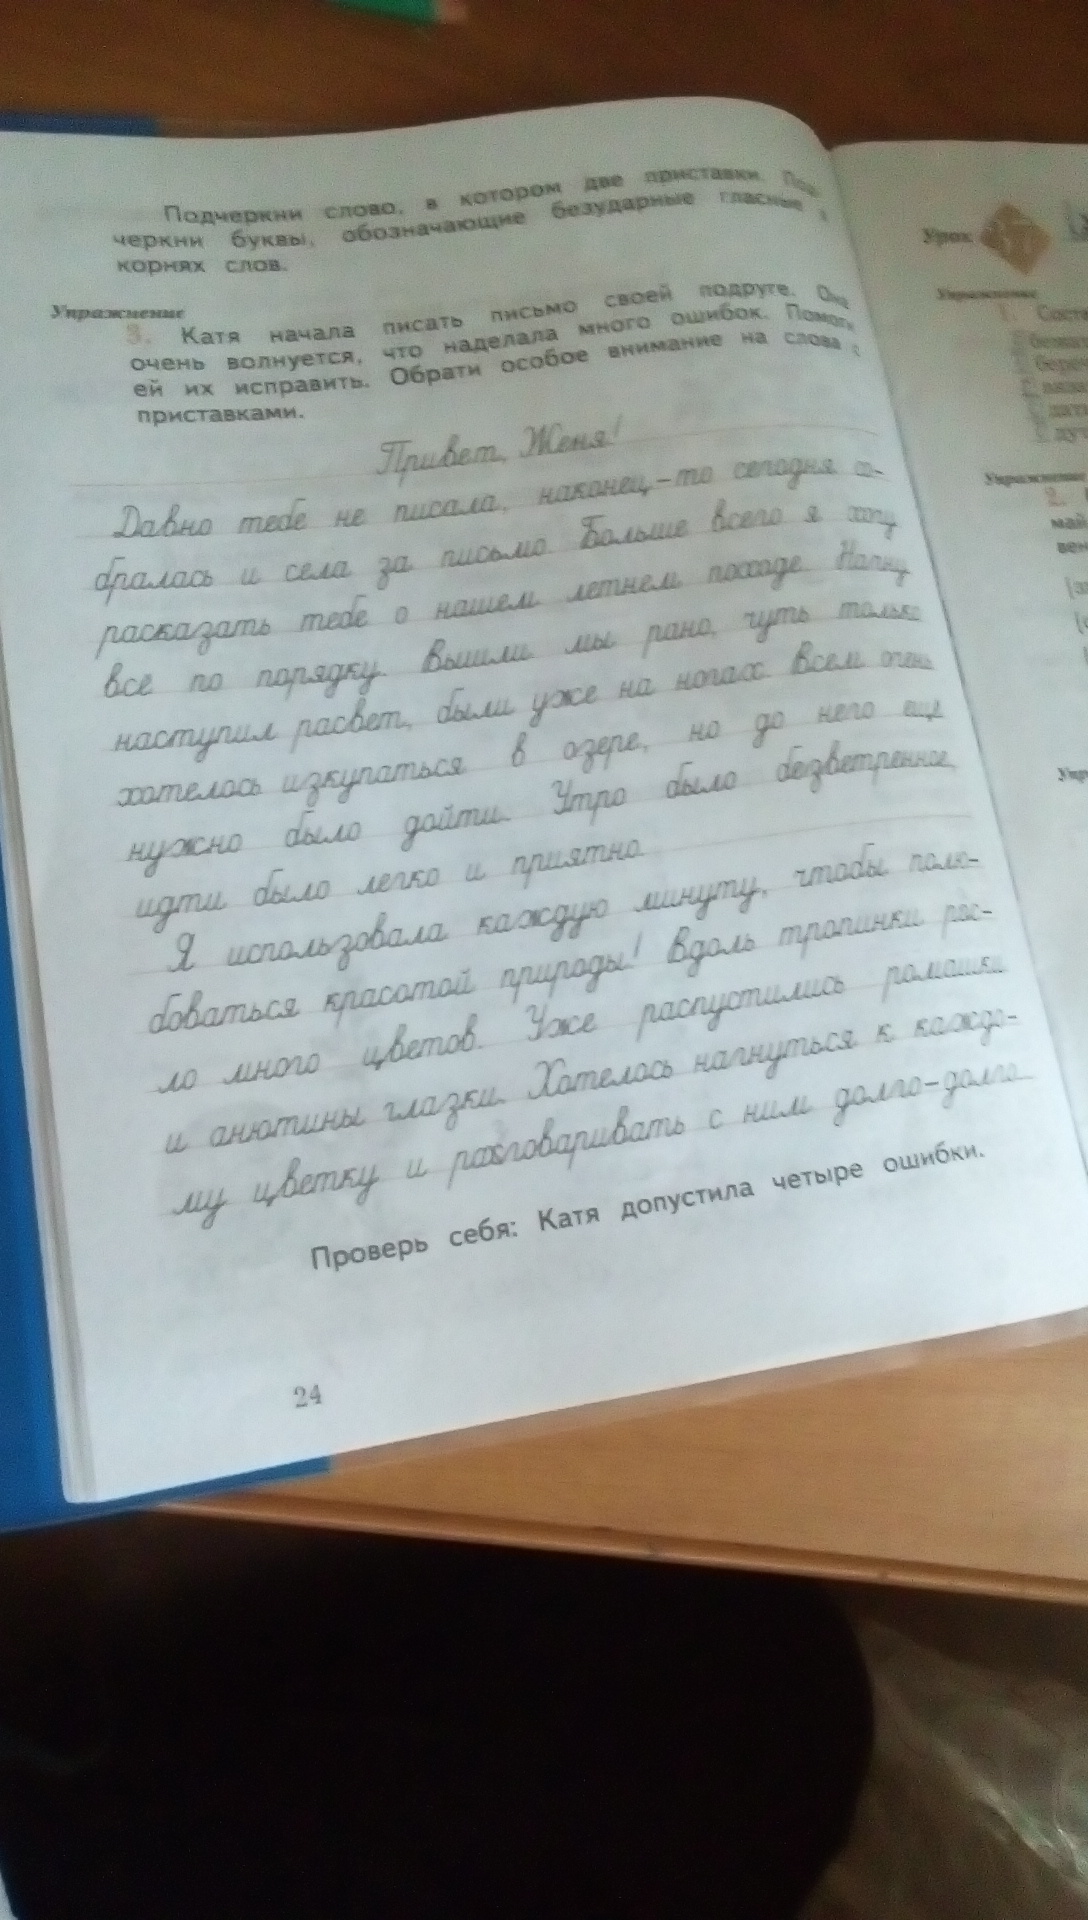 Подчеркни слово, в котором две приставки. Под-
черкни буквы, обозначающие безударные гласные в
корнях слов.
Упражнение
3. Катя начала писать письмо своей подруге. Она
очень волнуется, что наделала много ошибок. Помоги
ей их исправить. Обрати особое внимание на слова с
приставками.
Привет, Женя!
Давно тебе не писала, наконец-то сегодня со-
бралась и села за письмо. Больше всего я хочу
расказать тебе о нашем летнем походе. Начну
все по порядку. Вышли мы рано, чуть только
наступил расвет, были уже на ногах. Всем очень
хотелось изкупаться в озере, но до него ещё
нужно было дойти. Утро было безветренное,
идти было легко и приятно.
Я использовала каждую минуту, чтобы полю-
боваться красотой природы! Вдоль тропинки рос-
ло много цветов. Уже распустились ромашки
и анютины глазки. Хотелось нагнуться к каждо-
му цветку и разговаривать с ним долго-долго
Проверь себя: Катя допустила четыре ошибки.
24
Урок 37
Упражнение
1. Соста
Упражнение
2.
май
вен